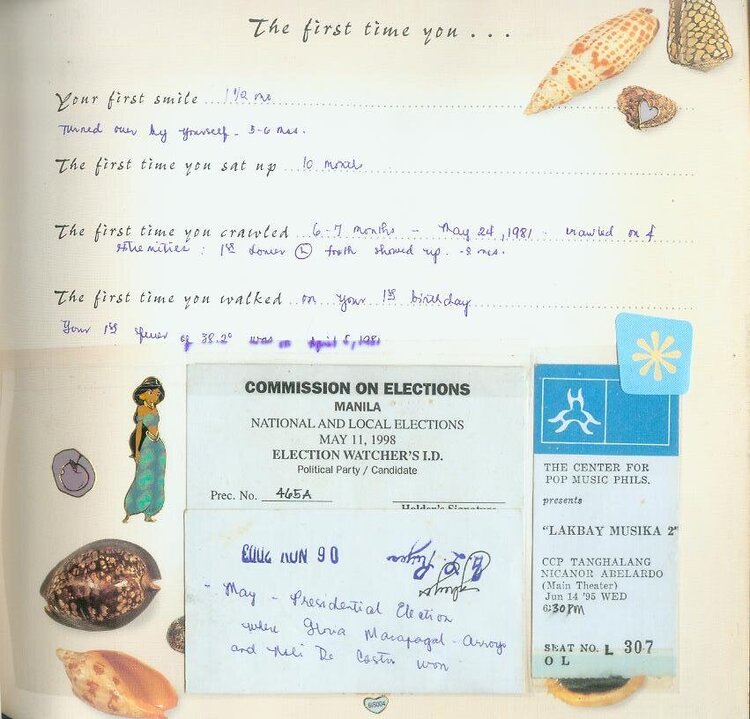 The first time you . . .
Your first smile 1 1/2 mo
Turned over by yourself - 5-6 mos.
The first time you sat up 10 months
The first time you crawled 6-7 months - May 24, 1981 - crawled on 4
extremities : 1st lower L tooth showed up - 8 mos.
The first time you walked on your 1st birthday
Your 1st fever of 38.2° was on April 5, 1981
COMMISSION ON ELECTIONS
MANILA
NATIONAL AND LOCAL ELECTIONS
MAY 11, 1998
ELECTION WATCHER'S I.D.
Political Party / Candidate
Prec. No. 465A
Holder's Signature
- May - Presidential Election
where Gloria Macapagal-Arroyo
and Noli De Castro won
THE CENTER FOR
POP MUSIC PHILS.
presents
"LAKBAY MUSIKA 2"
CCP TANGHALANG
NICANOR ABELARDO
(Main Theater)
Jun 14 '95 WED
6:30PM
SEAT NO. L 307
O L